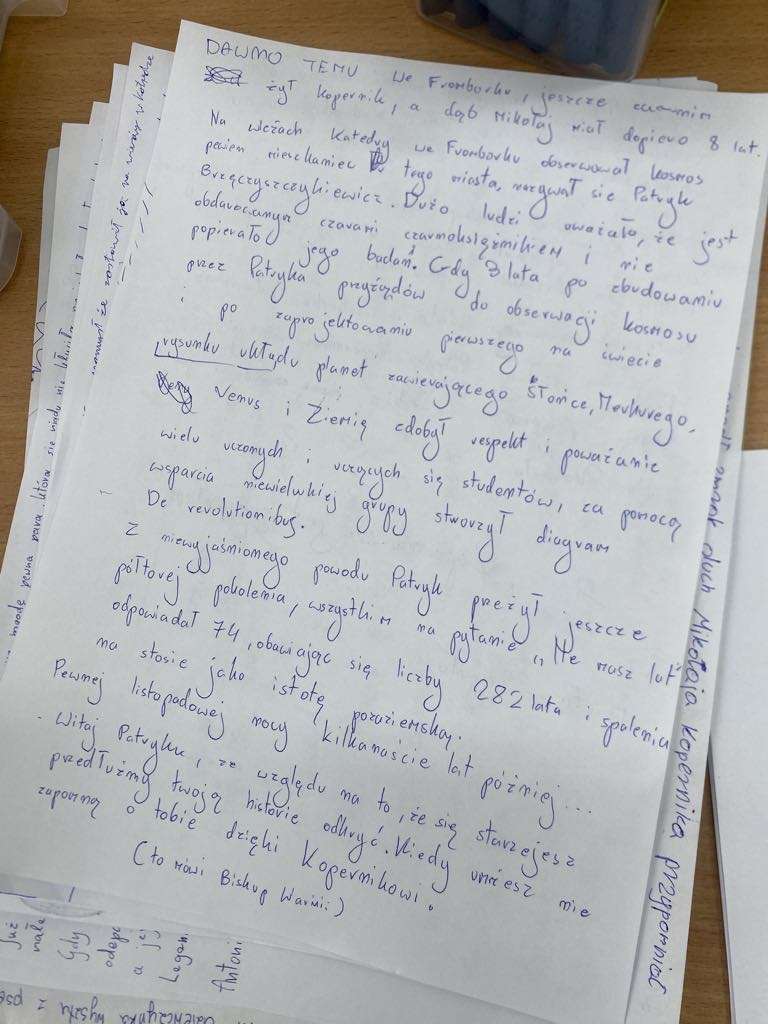 DAWNO TEMU we Fromborku, jeszcze zanim
żył Kopernik, a dąb Mikołaj miał dopiero 8 lat.
Na wieżach Katedry we Fromborku obserwował kosmos
pewien mieszkaniec tego miasta, nazywał się Patryk
Brzęczyszczykiewicz. Dużo ludzi uważało, że jest
obdarowanym czarami czarnoksiężnikiem i nie
popierało jego badań. Gdy 3 lata po zbudowaniu
przez Patryka przyrządów do obserwacji kosmosu
i po zaprojektowaniu pierwszego na świecie
rysunku układu planet zawierającego Słońce, Merkurego,
Venus i Ziemię zdobył respekt i poważanie
wielu uczonych i uczących się studentów, za pomocą
wsparcia niewielkiej grupy stworzył diagram
De revolutionibus.
Z niewyjaśnionego powodu Patryk przeżył jeszcze
półtorej pokolenia, wszystkim na pytanie „Ile masz lat"
odpowiadał 74, obawiając się liczby 282 lata i spalenia
na stosie jako istotę pozaziemską.
Pewnej listopadowej nocy kilkanaście lat później...
. Witaj Patryku, ze względu na to, że się starzejesz
przedłużmy twoją historię odkryć. Kiedy umrzesz nie
zapomną o tobie dzięki Kopernikowi.
(to mówi Biskup Warmii)
duch Mikołaja Kopernika przypomniał
Już
małe
Gdy
a jej
Antoni